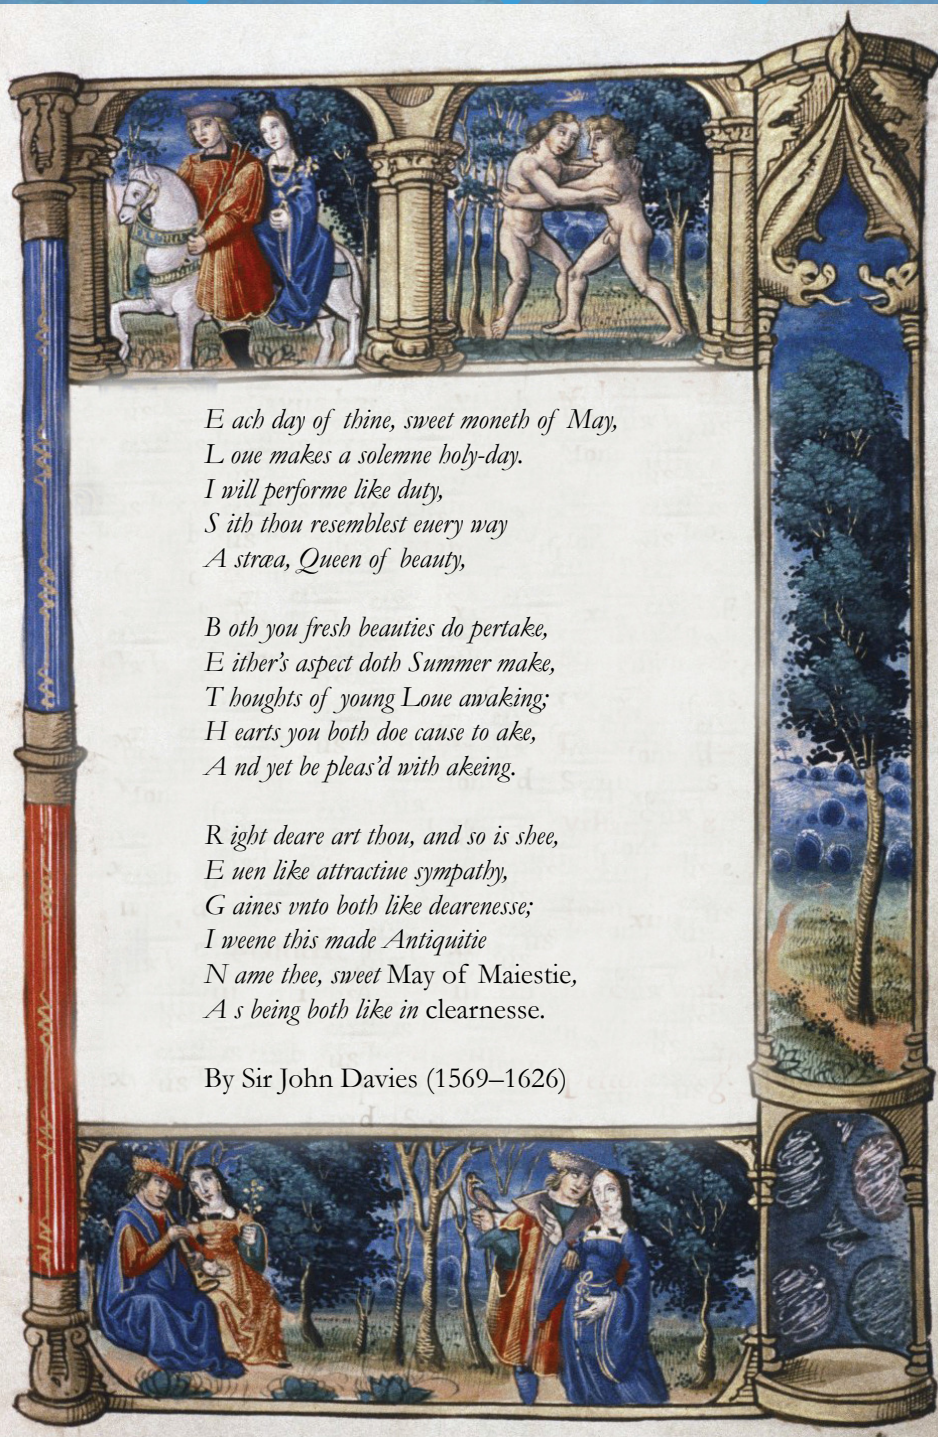 E ach day of thine, sweet moneth of May,
L oue makes a solemne holy-day.
I will performe like duty,
S ith thou resemblest euery way
A stræa, Queen of beauty,
B oth you fresh beauties do pertake,
E ither’s aspect doth Summer make,
T houghts of young Loue awaking;
H earts you both doe cause to ake,
A nd yet be pleas’d with akeing.
R ight deare art thou, and so is shee,
E uen like attractiue sympathy,
G aines vnto both like dearenesse;
I weene this made Antiquitie
N ame thee, sweet May of Maiestie,
A s being both like in clearnesse.
By Sir John Davies (1569–1626)